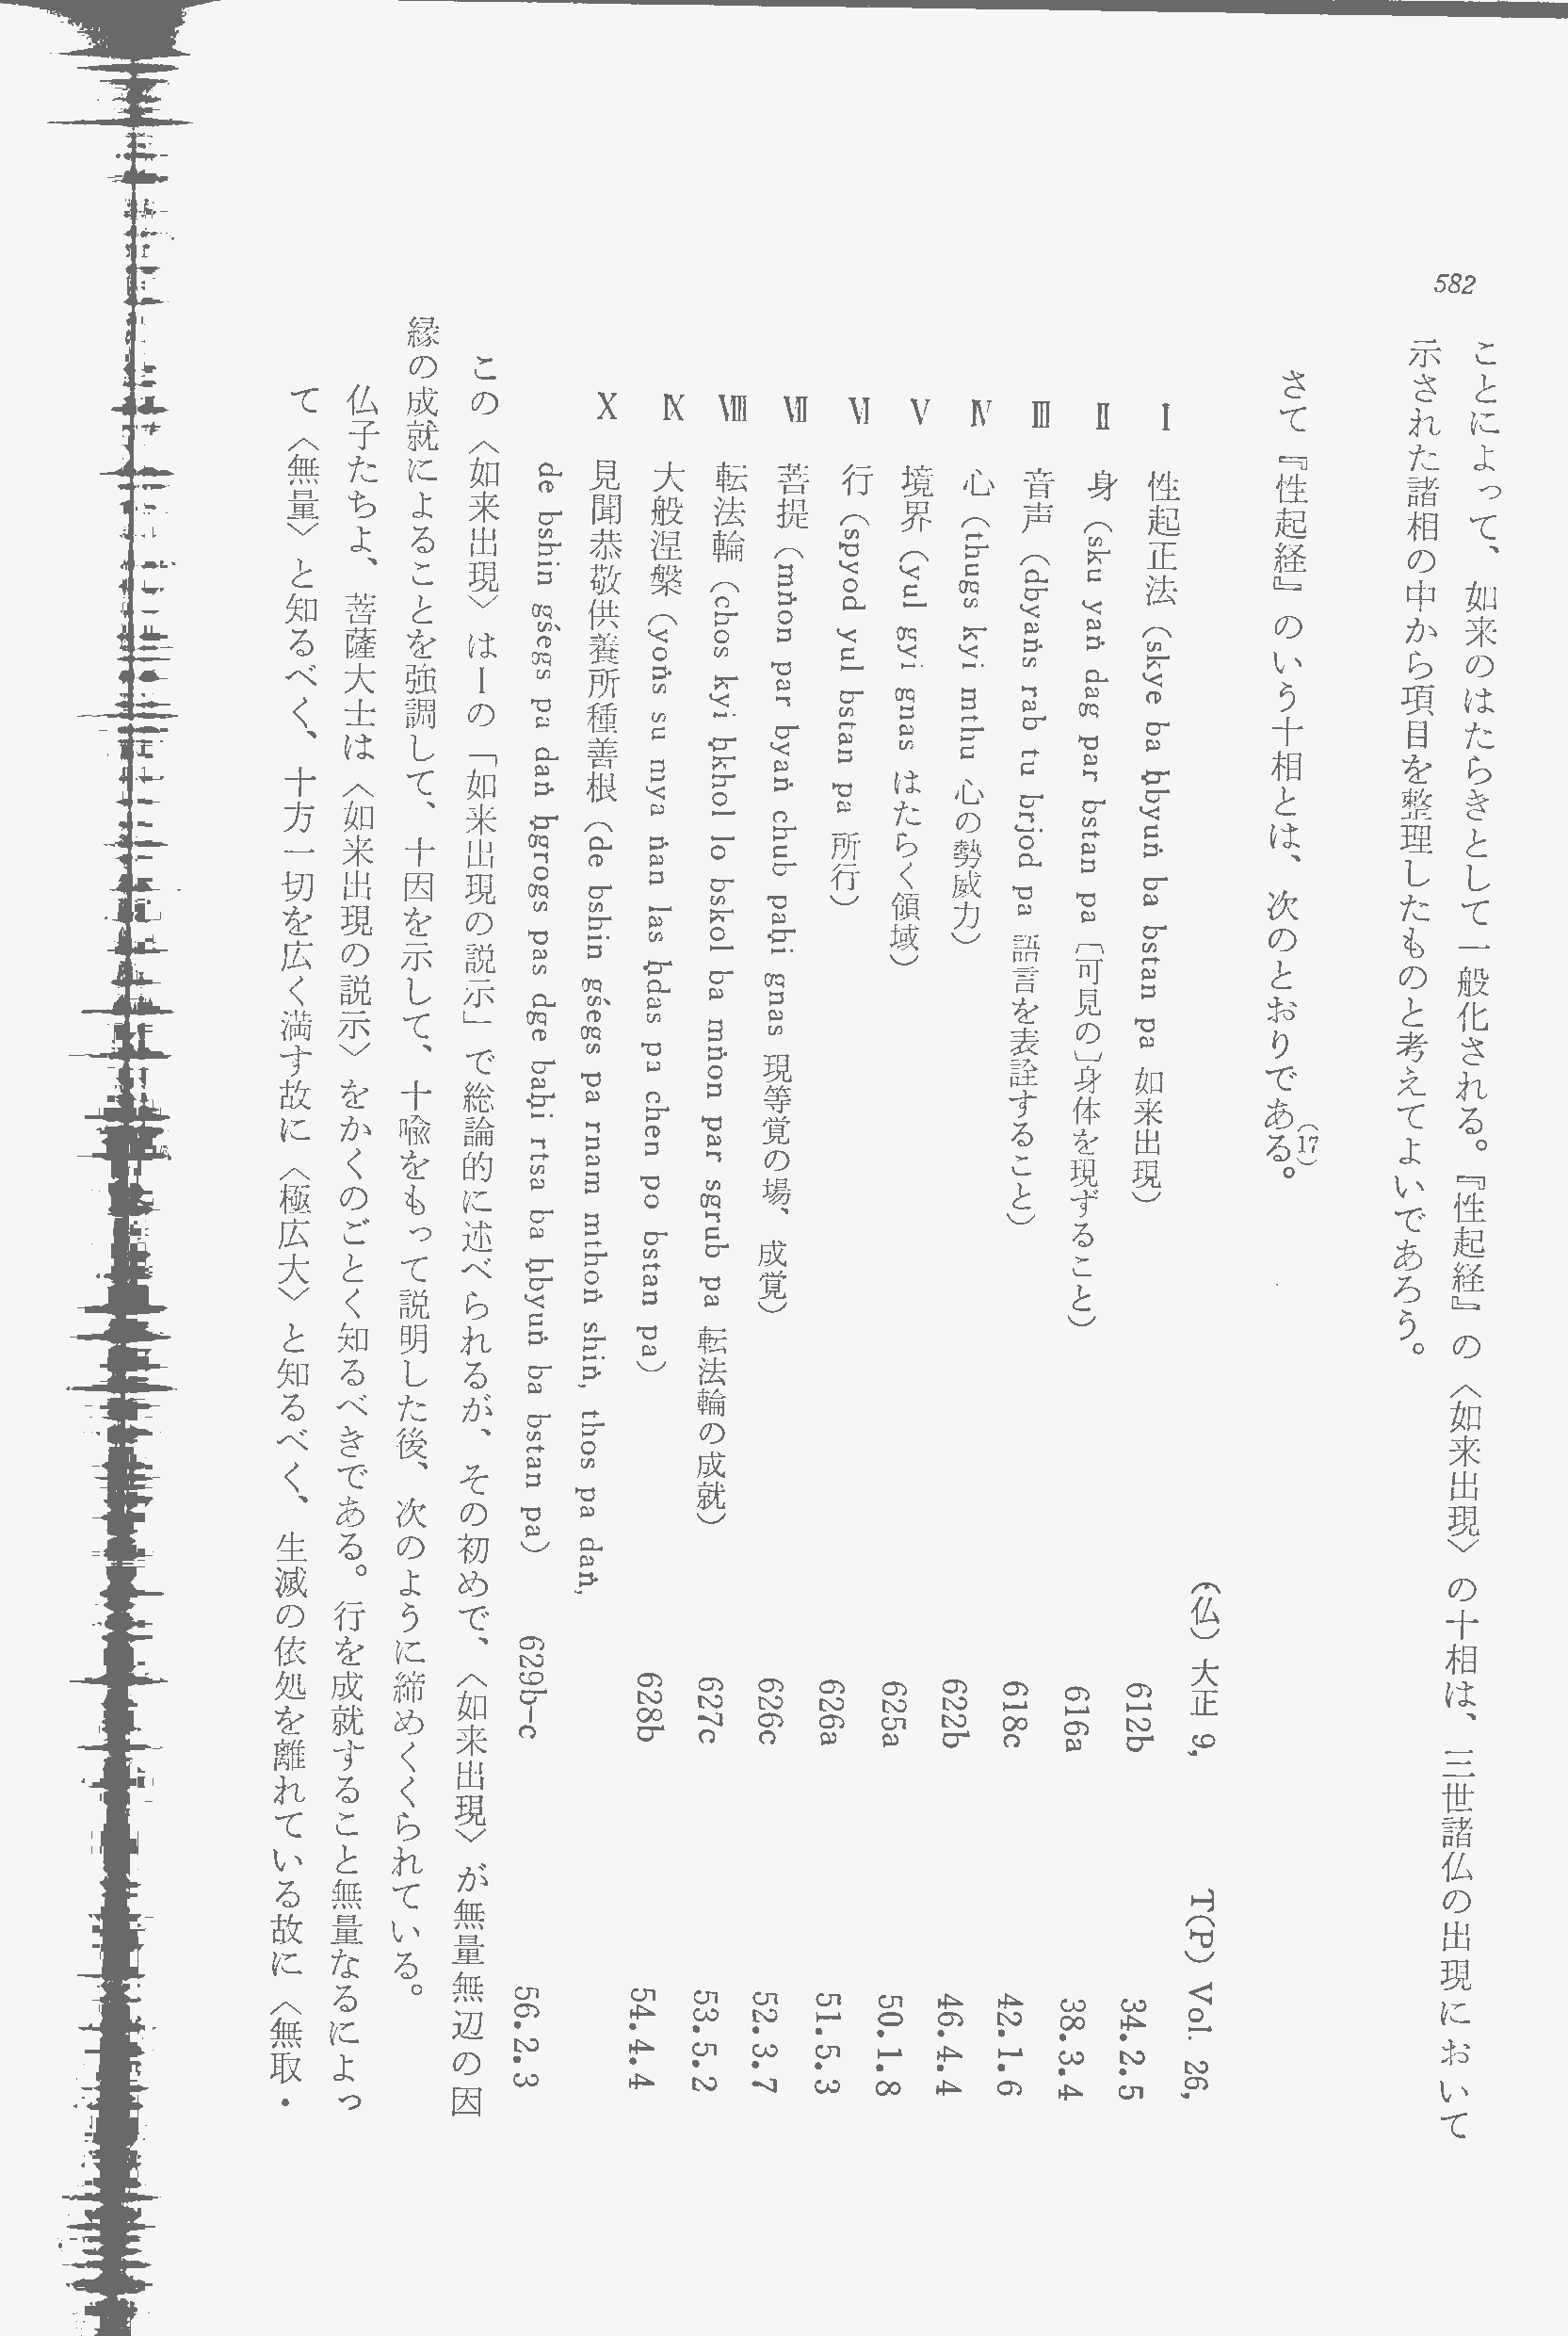 582
ことによって、如来のはたらきとして一般化される。『性起経』の〈如来出現〉の十相は、三世諸仏の出現において
示された諸相の中から項目を整理したものと考えてよいであろう。
さて『性起経』のいう十相とは、次のとおりである。(17)
(仏) 大正 9, T(P) Vol. 26,
Ⅰ 性起正法 (skye ba ḥbyuṅ ba bstan pa 如来出現) 612b 34.2.5
Ⅱ 身 (sku yaṅ dag par bstan pa [可見の]身体を現ずること) 616a 38.3.4
Ⅲ 音声 (dbyaṅs rab tu brjod pa 語言を表詮すること) 618c 42.1.6
Ⅳ 心 (thugs kyi mthu 心の勢威力) 622b 46.4.4
Ⅴ 境界 (yul gyi gnas はたらく領域) 625a 50.1.8
Ⅵ 行 (spyod yul bstan pa 所行) 626a 51.5.3
Ⅶ 菩提 (mṅon par byaṅ chub paḥi gnas 現等覚の場、成覚) 626c 52.3.7
Ⅷ 転法輪 (chos kyi ḥkhol lo bskol ba mṅon par sgrub pa 転法輪の成就) 627c 53.5.2
Ⅸ 大般涅槃 (yoṅs su mya ṅan las ḥdas pa chen po bstan pa) 628b 54.4.4
Ⅹ 見聞恭敬供養所種善根 (de bshin gśegs pa rnam mthoṅ shiṅ, thos pa daṅ,
de bshin gśegs pa daṅ ḥgrogs pas dge baḥi rtsa ba ḥbyuṅ ba bstan pa) 629b-c 56.2.3
この〈如来出現〉はⅠの「如来出現の説示」で総論的に述べられるが、その初めで、〈如来出現〉が無量無辺の因
縁の成就によることを強調して、十因を示して、十喩をもって説明した後、次のように締めくくられている。
仏子たちよ、菩薩大士は〈如来出現の説示〉をかくのごとく知るべきである。行を成就すること無量なるによっ
て〈無量〉と知るべく、十方一切を広く満す故に〈極広大〉と知るべく、生滅の依処を離れている故に〈無取・